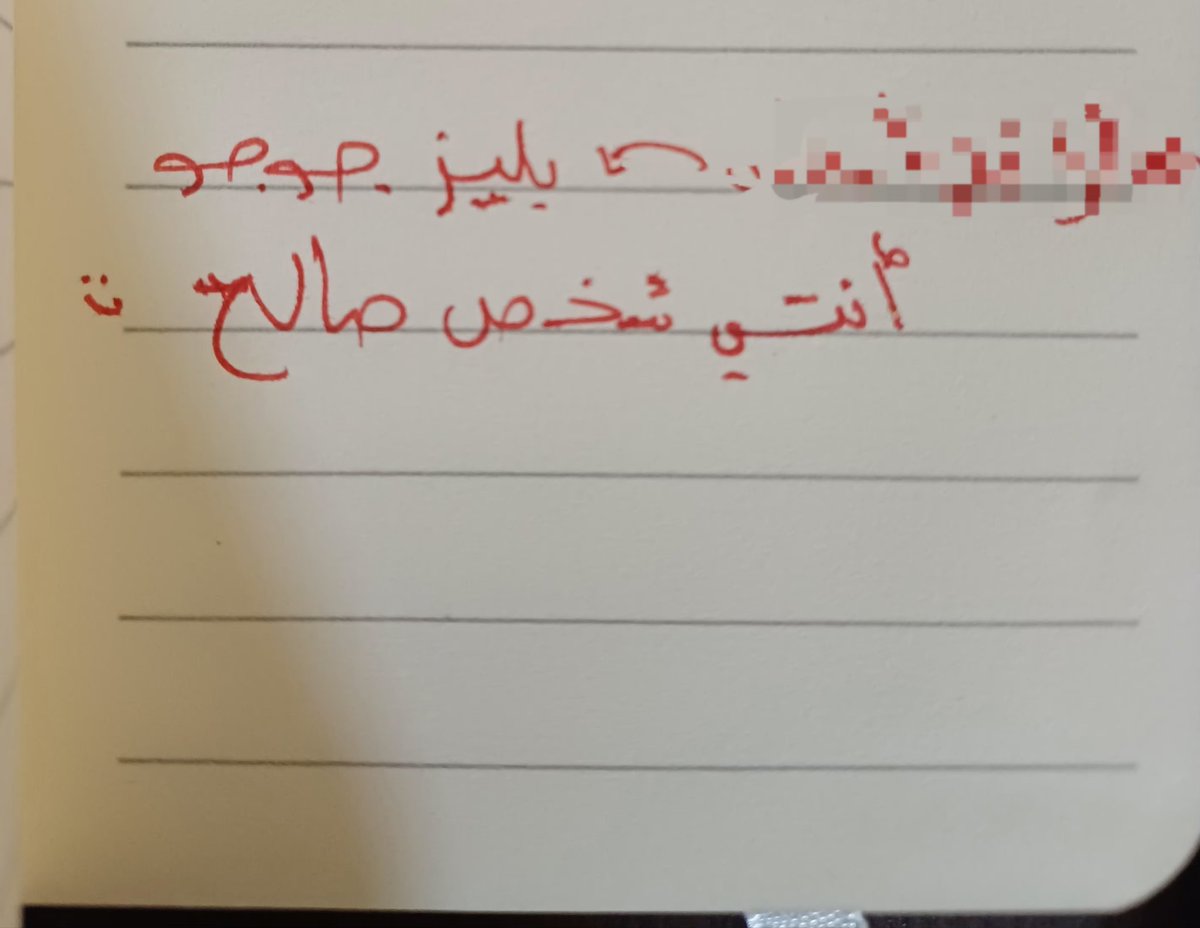 بليز جوجو
أنتي شخص صالح